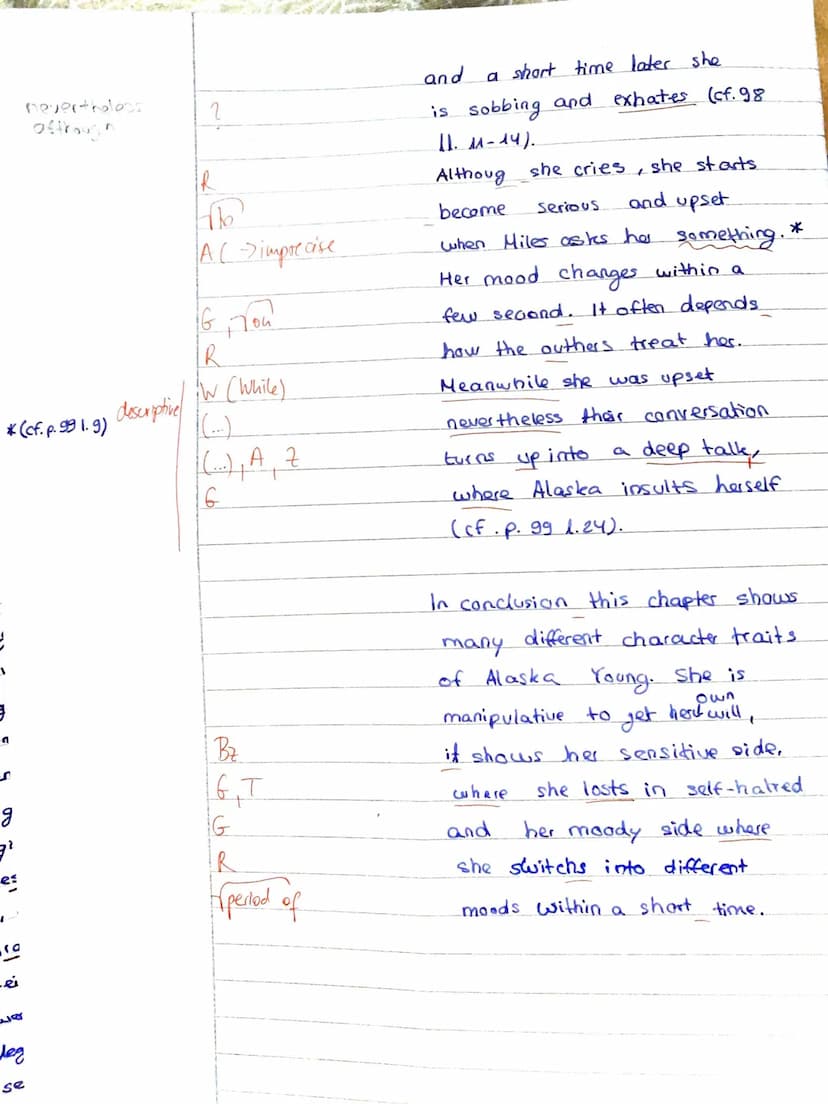 and a short time later she
nevertheless
?
is sobbing and exhates (cf. 98
ll. 11-14).
R
Althoug she cries, she starts
to
become serious and upset
A (->imprecise
when Miles asks her something.*
Her mood changes within a
G, on
few second. It often depends
R
how the outhers treat her.
W (While)
Meanwhile she was upset
*(cf. p. 99 l. 9)
descriptive
(...)
nevertheless their conversation
(...), A, Z
turns up into a deep talk,
G
where Alaska insults herself
(cf. p. 99 l. 24).
In conclusion this chapter shows
many different character traits
of Alaska Young. She is
own
manipulative to get her will,
Bz
it shows her sensitive side,
G, T
where she losts in self-halred
G
and her moody side where
R
she switchs into different
period of
moods within a short time.